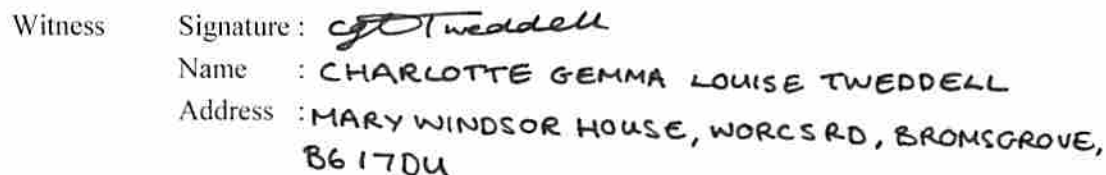 Witness Signature : cglTweddell
Name : CHARLOTTE GEMMA LOUISE TWEDDELL
Address : MARY WINDSOR HOUSE, WORCS RD, BROMSGROVE,
B61 7DU